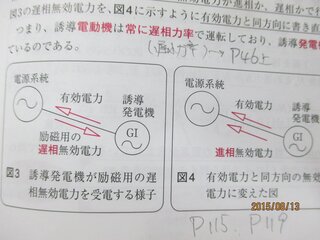 図3の遅相無効電力を、図4に示すように有効電力と同方向に書き直
つまり、誘導電動機は常に遅相力率で運転しており、誘導発電
ているのである。
→ P46上
電源系統
有効電力
誘導
発電機
GI
励磁用の
遅相無効電力
図3 誘導発電機が励磁用の遅
相無効電力を受電する様子
電源系統
有効電力
誘導
発電機
GI
進相無効電力
図4 有効電力と同方向の無効
電力に変えた図
2015/08/13
P115、P119